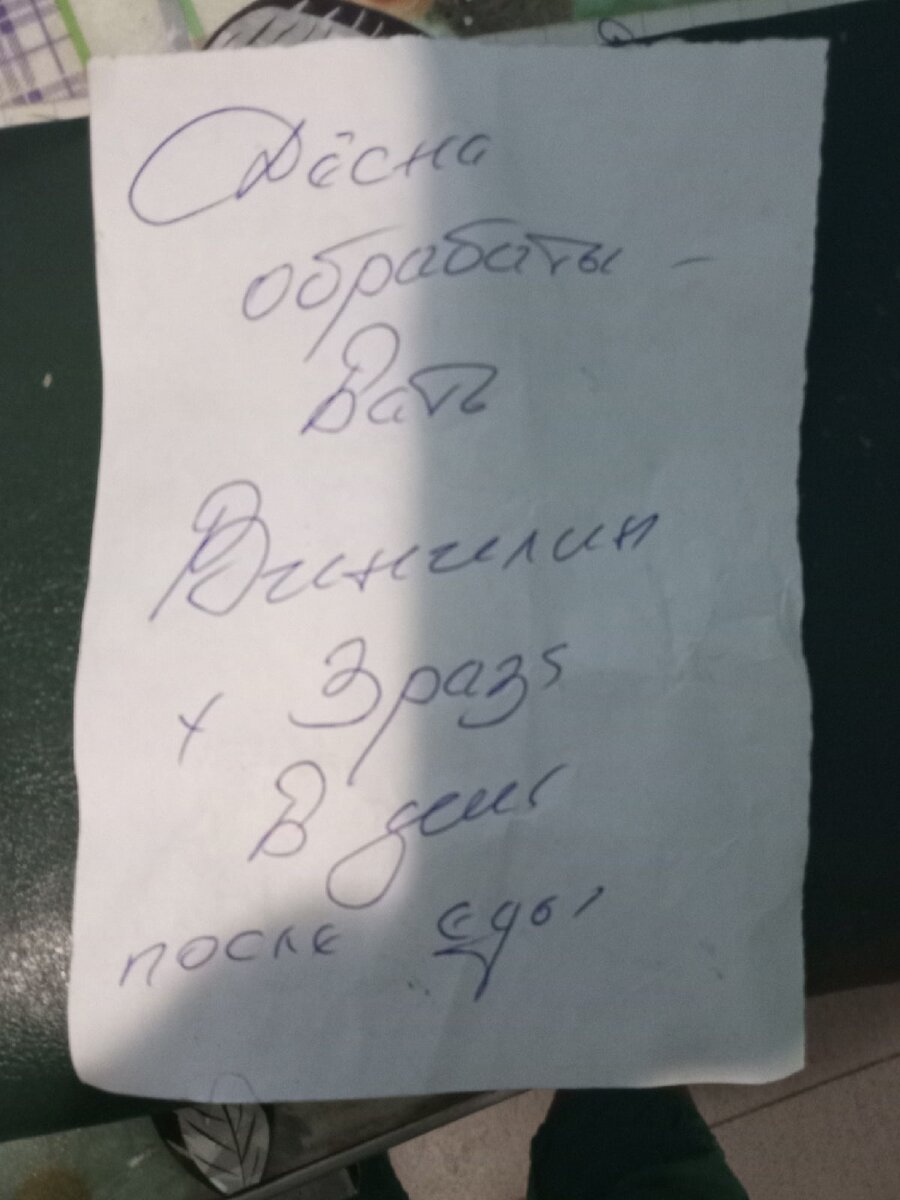 Дёсна
обрабаты -
вать
Винилин
х 3 раза
в день
после еды